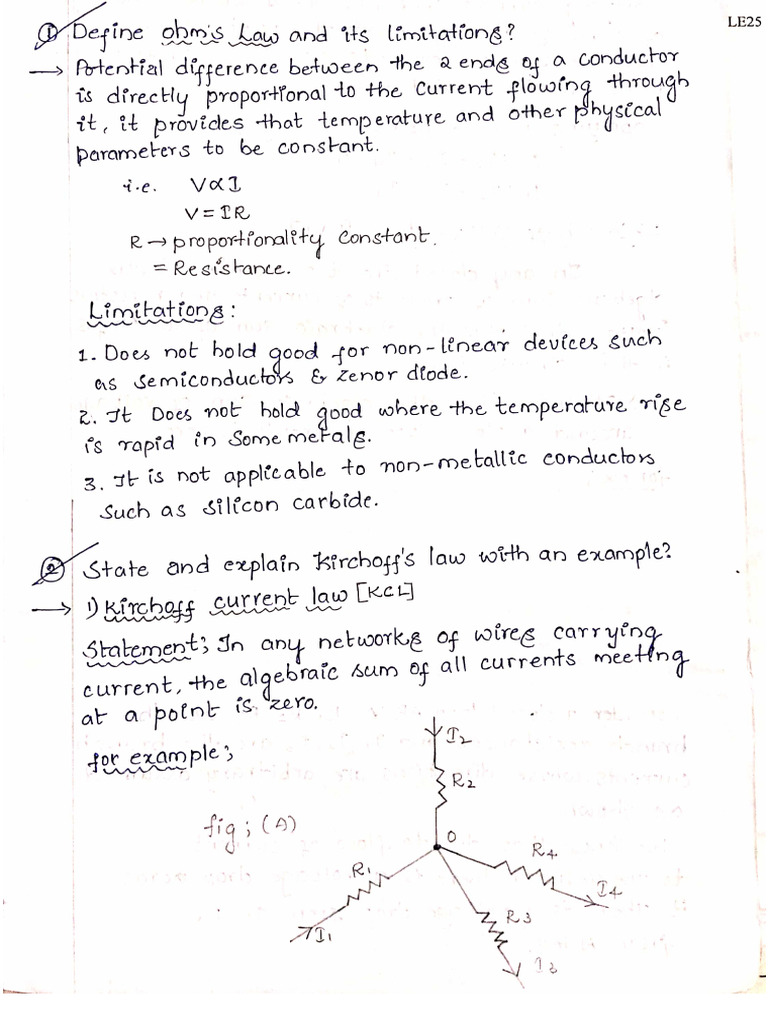 LE25
① Define ohm's Law and its limitations?
→ Potential difference between the 2 ends of a conductor
is directly proportional to the current flowing through
it, it provides that temperature and other physical
parameters to be constant.
i.e. V∝I
V = IR
R → proportionality constant.
= Resistance.
Limitations:
1. Does not hold good for non-linear devices such
as semiconductors & zenor diode.
2. It Does not hold good where the temperature rise
is rapid in some metals.
3. It is not applicable to non-metallic conductors
such as silicon carbide.
② State and explain Kirchoff's law with an example?
→ 1) Kirchoff current law [KCL]
Statement; In any networks of wires carrying
current, the algebraic sum of all currents meeting
at a point is zero.
for example;
I2
R2
fig; (A)
O
R4
R1
I4
R3
I1
I3